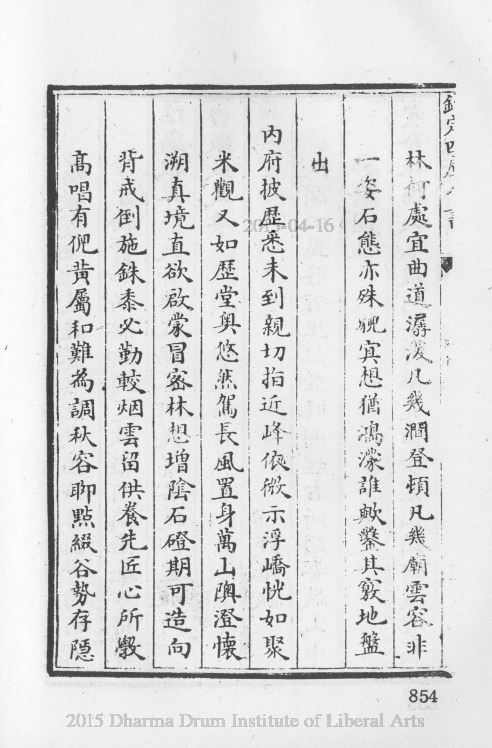 林何處宜曲道潺湲凡幾澗登頓凡幾廟雲容非
一姿石態亦殊貌㝠想猶鴻濛誰歟鑿其竅地盤
出
内府披歴悉未到親切指近峰依微示浮嶠恍如聚
米觀又如歴堂奥悠然駕長風置身萬山隩澄懐
溯真境直欲啟蒙冒宻林想增隂石磴期可造向
背戒倒施銖黍必勤較烟雲留供養先匠心所斆
髙唱有倪黄屬和難為調秋容聊點綴谷勢存隠
欽定四庫全書
2015-04-16
854
2015 Dharma Drum Institute of Liberal Arts